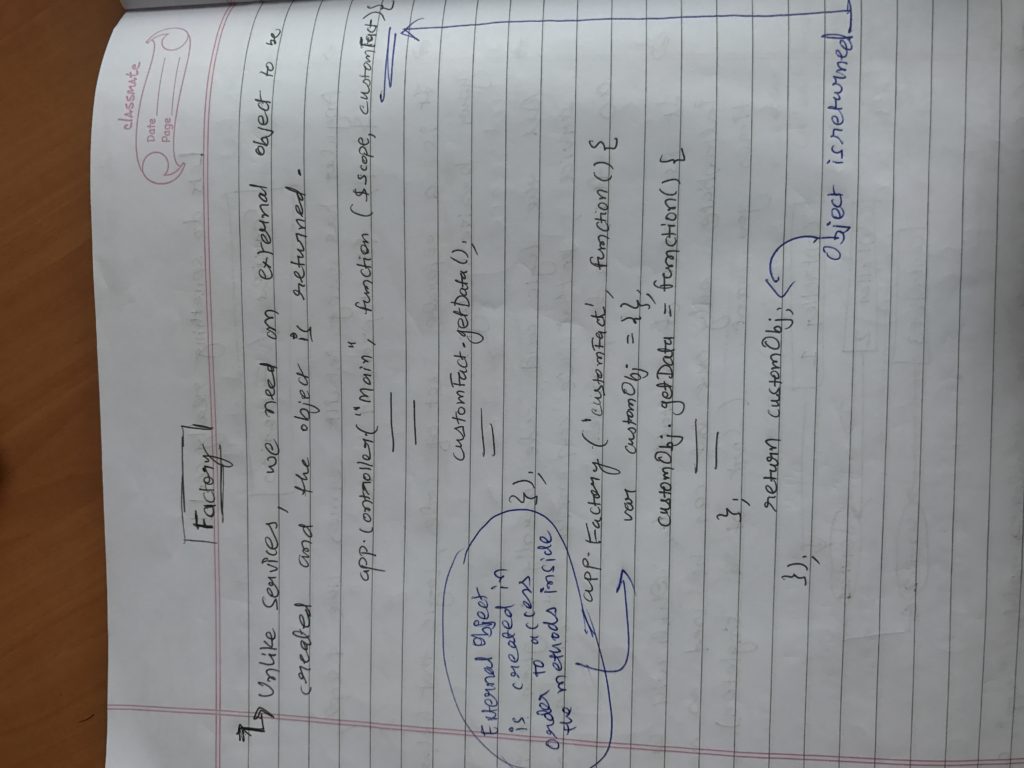 classmate
Date
Page
Factory
Unlike services, we need an external object to be
created and the object is returned.
app.controller("Main", function ($scope, customFact){
customFact.getData();
});
External Object
is created in
order to access
the methods inside
app.Factory ('customFact', function() {
var customObj = {};
customObj.getData = function() {
};
return customObj;
});
Object is returned